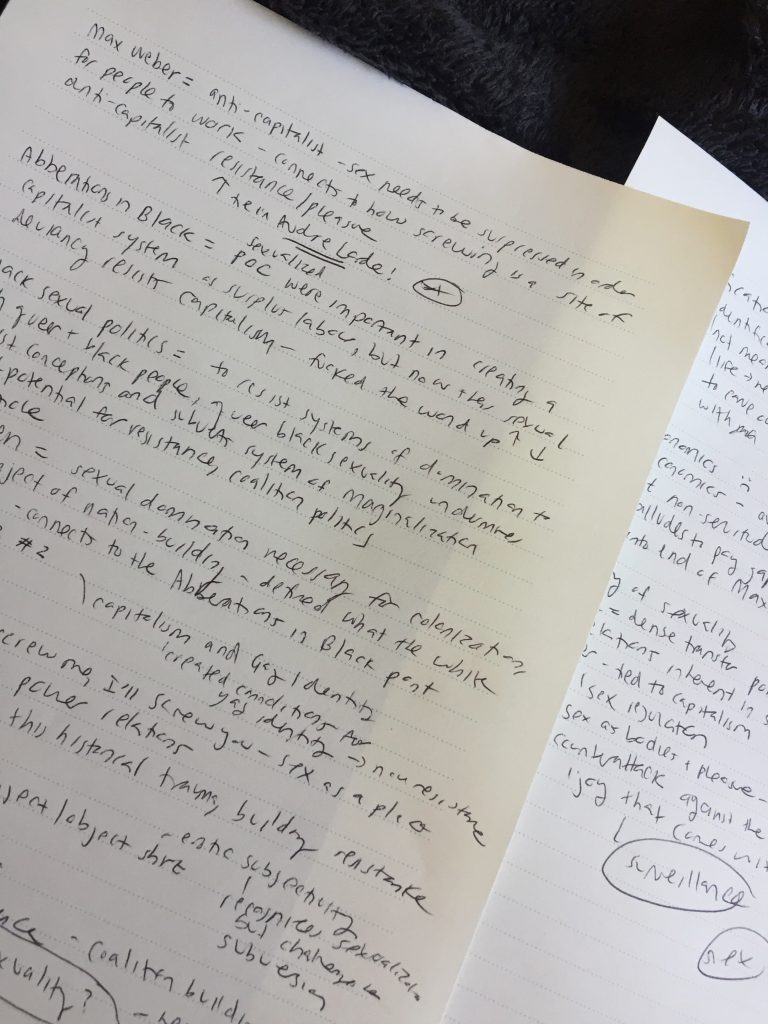 Max Weber = anti-capitalist - sex needs to be surpressed in order
for people to work - connects to how screwing is a site of
anti-capitalist resistance/pleasure
↑ then Audre Lorde!
Abberations in Black = sexualized POC were important in creating a
capitalist system as surplus labour, but now their sexual
deviancy resists capitalism - fucked the word up ↑ ↓
sexual politics = to resist systems of domination to
queer + black people, queer black sexuality undermines
conceptions and subverts system of marginalization
potential for resistance, coalition politics
= sexual domination necessary for colonization,
of nation-building - defined what the white
- connects to the Abberations in Black part
#2
capitalism and Gay Identity
created conditions for
gay identity → now resistance
screw me, I'll screw you - sex as a place
power relations
this historical trauma, building resistance
/object shirt
- erotic subjectivity
recognizes sexualization
but challenges
subversion
- coalition
?
life
to
with
pay gap
into end of Max
of sexuality
= dense transfer
relations inherent in
- tied to capitalism
sex regulation
sex as bodies + pleasure -
counterattack against the
joy that comes
surveillance
sex